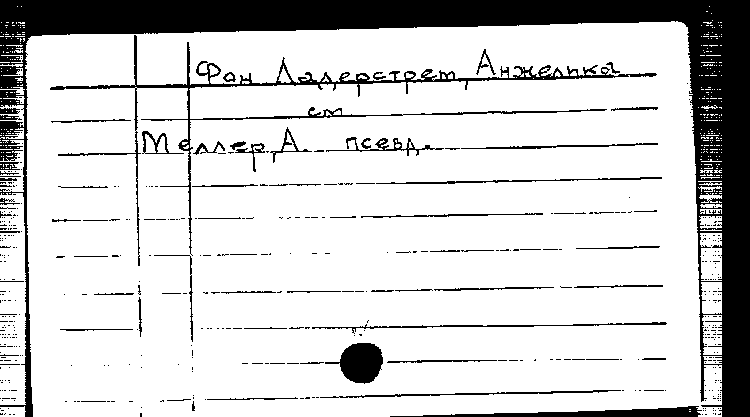 Фон Ладерстрем, Анжелика
см
Меллер, А. псевд.